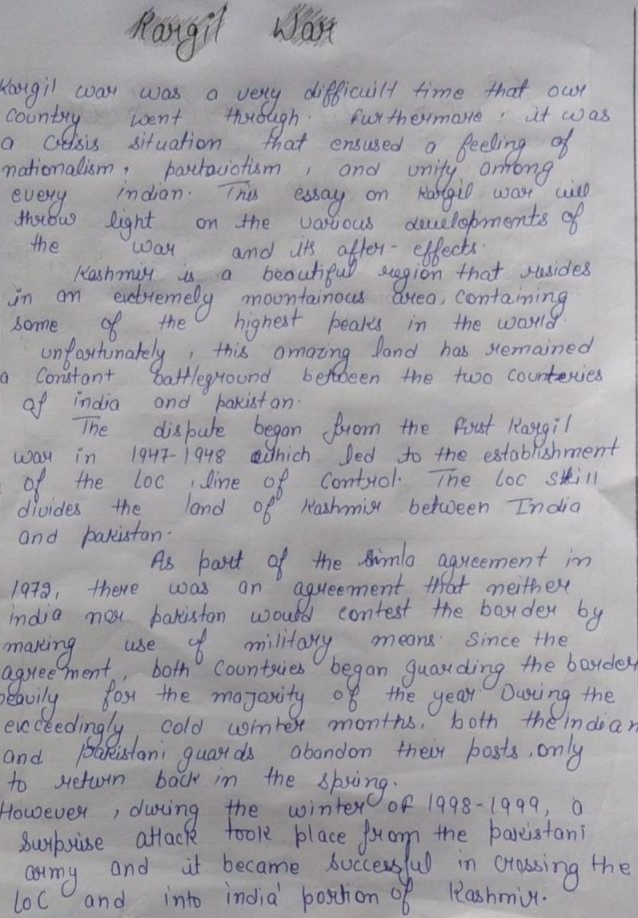 Kargil War
Kargil war was a very difficuilt time that our
country went through. Furthermore, it was
a crisis situation that ensused a feeling of
nationalism, partoiotism, and unity among
every indian. This essay on Kargil war will
throw light on the various developments of
the war and its after-effects.
Kashmir is a beautiful region that resides
in an exctremely mountainous area, containing
some of the highest peaks in the world.
unfortunately, this amazing land has remained
a constant battleground between the two counteries
of india and pakistan.
The dispute began from the first Kargil
war in 1947-1948 which led to the establishment
of the LOC, line of control. The LOC still
divides the land of Kashmir between India
and pakistan.
As part of the Simla agreement in
1972, there was an agreement that neither
india nor pakistan would contest the border by
making use of military means. Since the
agreement, both countries began guarding the border
heavily for the majority of the year During the
exceedingly cold winter months, both the indian
and pakistani guards abandon their posts, only
to return back in the spring.
However, during the winter of 1998-1999, a
surprise attack took place from the pakistani
army and it became successful in crossing the
LOC and into india' portion of Kashmir.